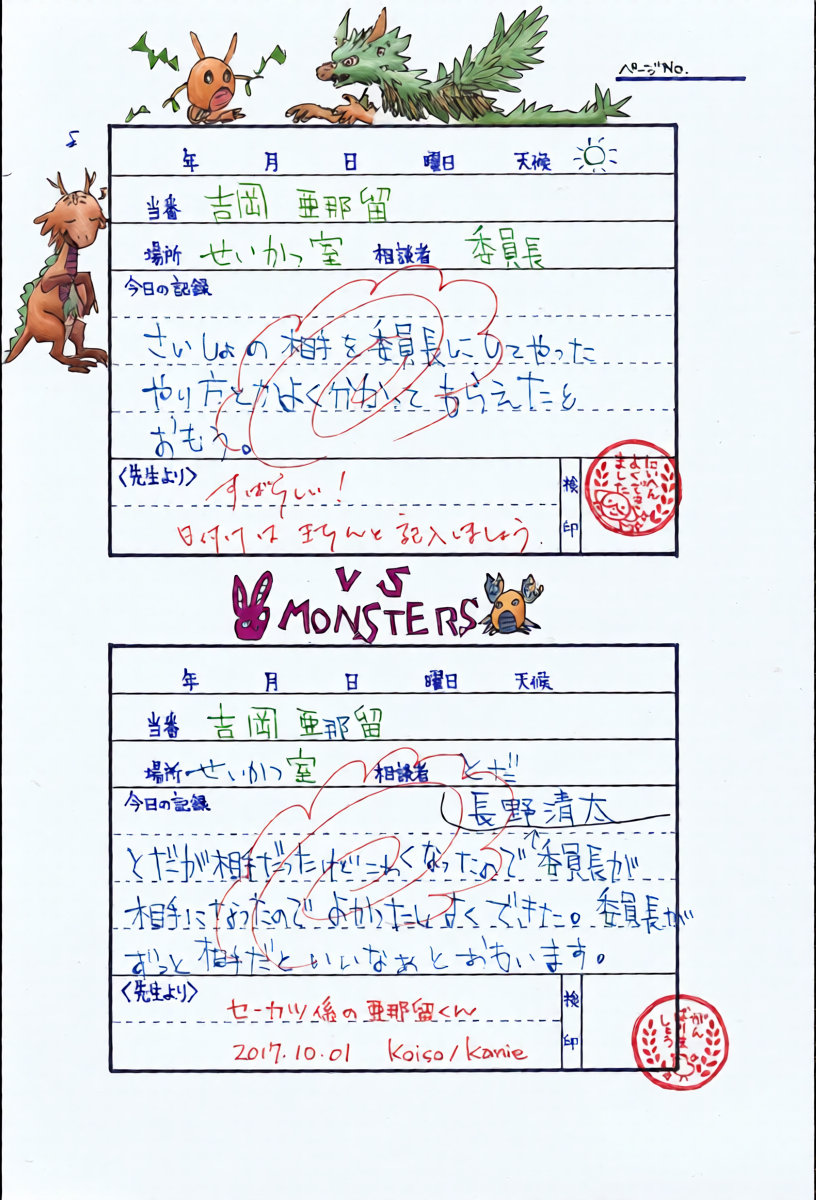 ページNo.
年 月 日 曜日 天候
当番 吉岡 亜那留
場所 せいかつ室 相談者 委員長
今日の記録
さいしょの相手を委員長にしてやった
やり方とかよく分かってもらえたと
おもう。
〈先生より〉 検印
すばらしい!
日付けはきちんと記入しましょう
たいへん
よくでき
ました
VS
MONSTERS
年 月 日 曜日 天候
当番 吉岡 亜那留
場所 せいかつ室 相談者 とだ
今日の記録 長野清太
とだが相手だったけどこわくなったので委員長が
相手になったのでよかったしよくできた。委員長が
ずっと相手だといいなぁとおもいます。
〈先生より〉 検印
セーカツ係の亜那留くん
2017.10.01 Koiso/Kanie
がん
ばりま
しょう